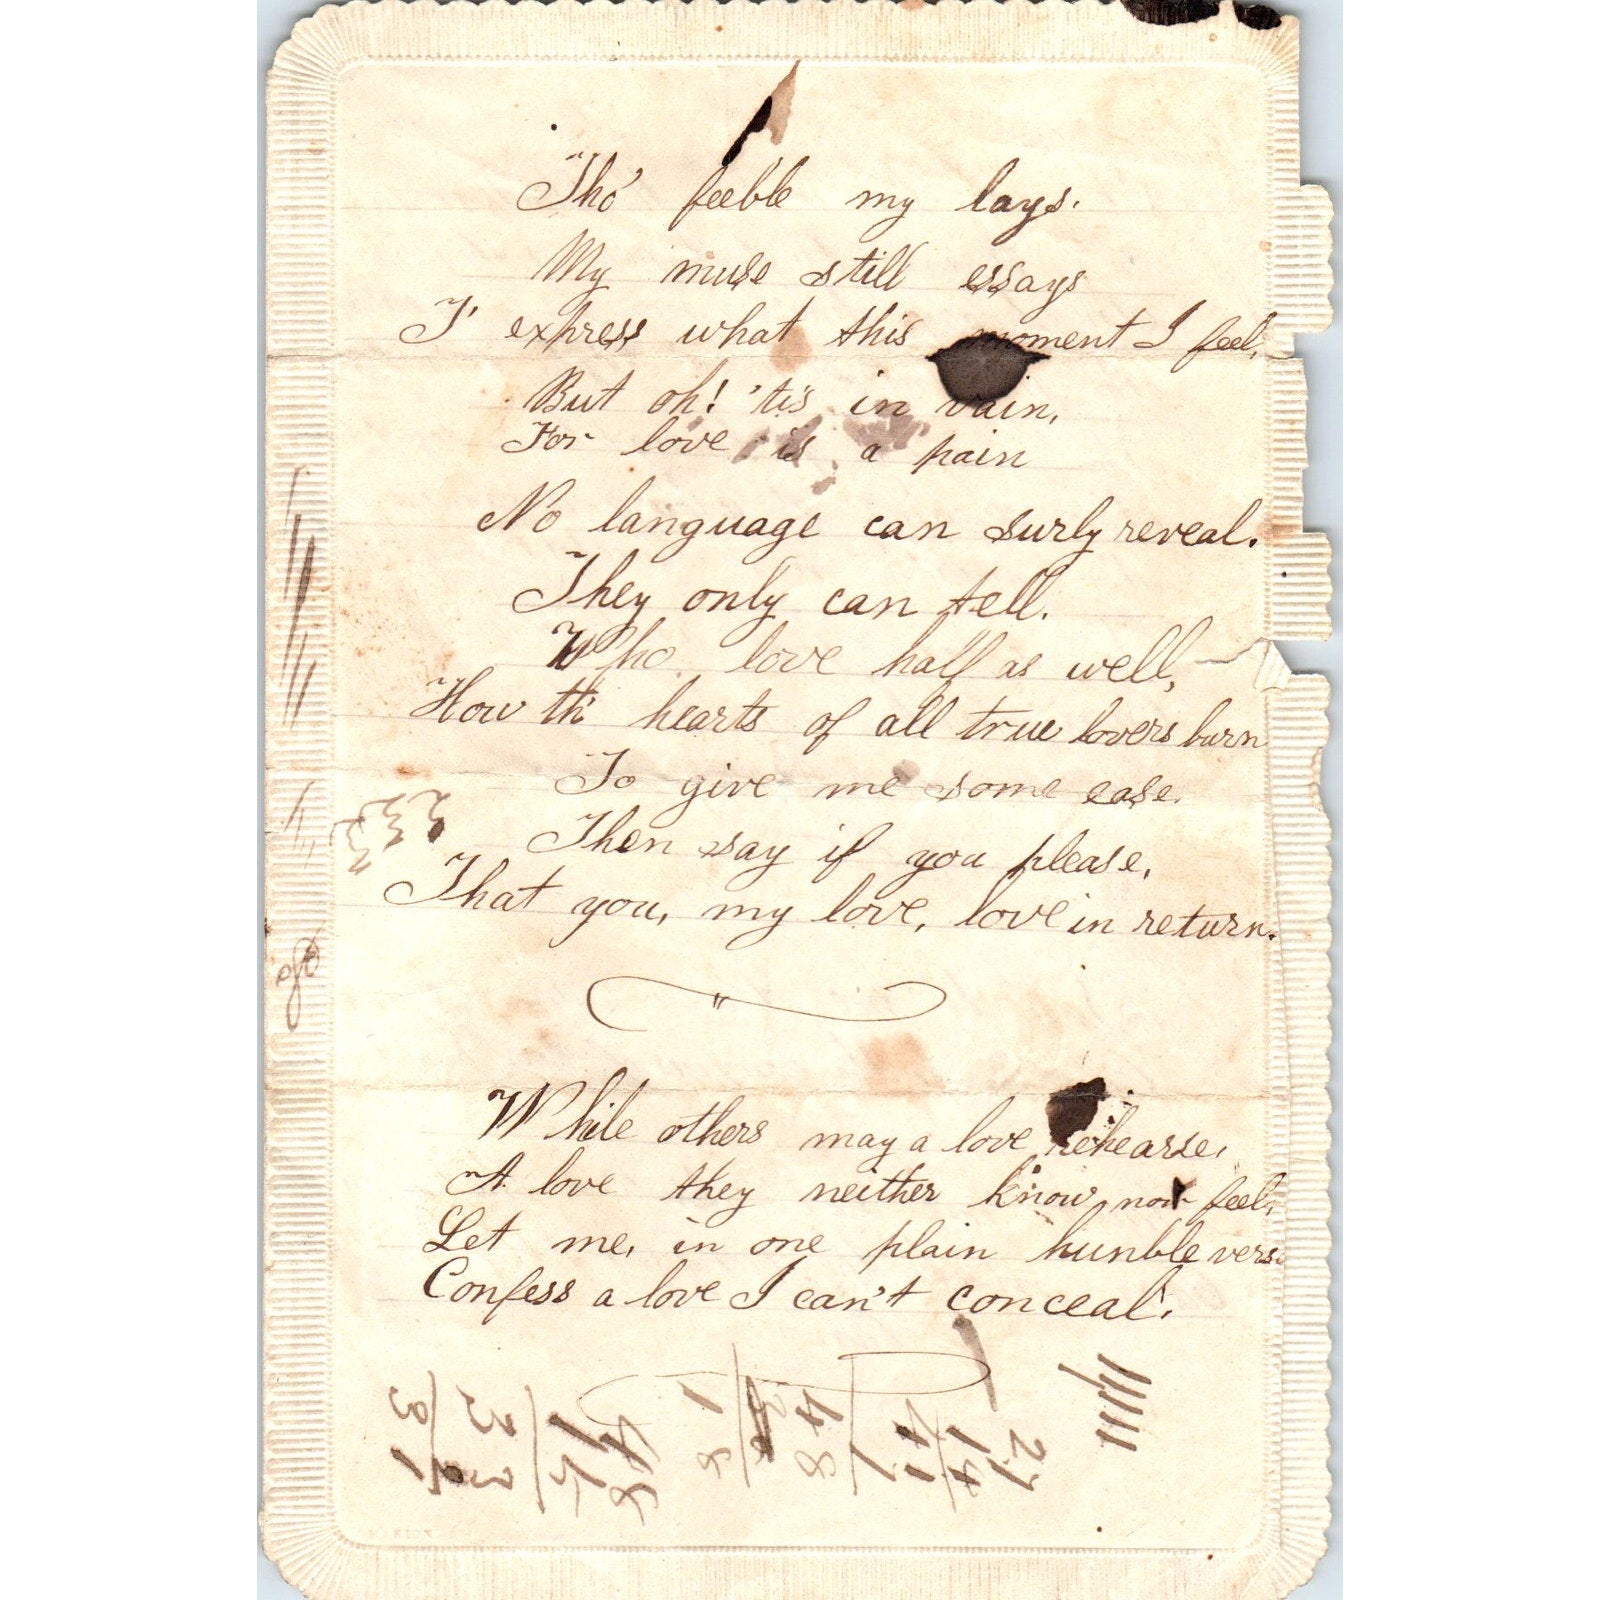 Tho' feeble my lays.
My muse still essays
T' express what this moment I feel,
But oh! 'tis in vain,
For love is a pain
No language can surly reveal.
They only can tell.
Who love half as well,
How th' hearts of all true lovers burn
To give me some ease.
Then say if you please,
That you, my love, love in return.
While others may a love rehearse,
A love they neither know nor feel,
Let me, in one plain hunble vers
Confess a love I can't conceal.